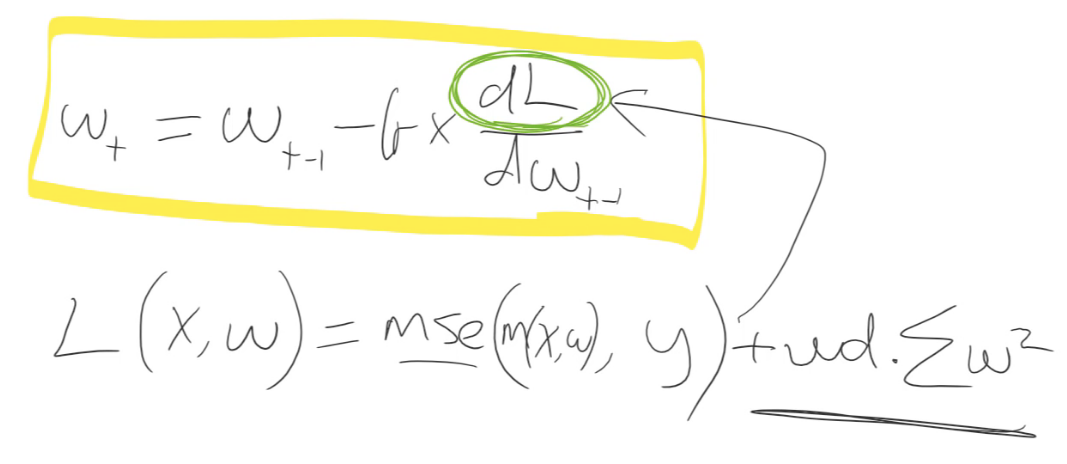 w_t = w_{t-1} - lr × dL/dw_{t-1}
L(x,w) = mse(m(x,w), y) + wd . Σ w²